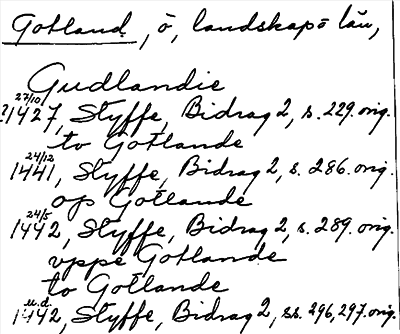 Gotland, ö, landskap o län,
Gudlandie
27/10 1427, Styffe, Bidrag 2, s. 229. orig.
to Gotlande
24/12 1441, Styffe, Bidrag 2, s. 286. orig.
op Gotlande
24/5 1442, Styffe, Bidrag 2, s. 289. orig.
vppe Gotlande
to Gotlande
u.d. 1442, Styffe, Bidrag 2, ss. 296, 297. orig.